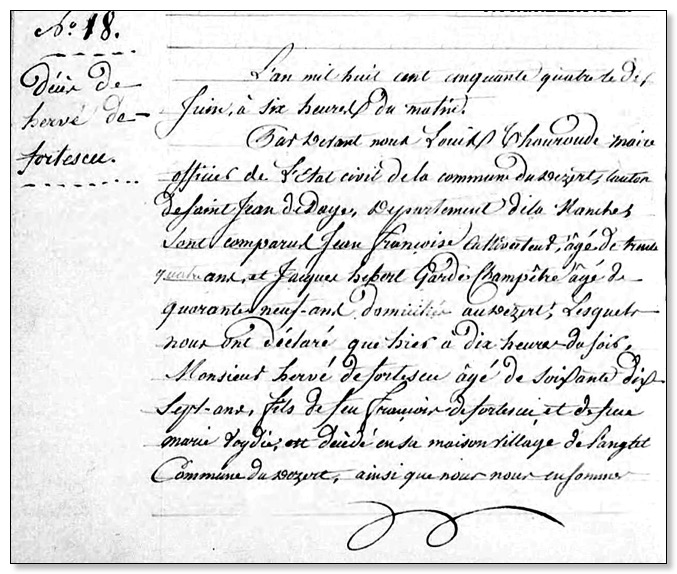 N° 18.
Décès de
hervé de-
fortescu.
L'an mil huit cent cinquante quatre le dix
Juin, à six heures du matin.
Par devant nous Louis Chouroude maire
officier de L'Etat civil de la commune du dezert, canton
de saint Jean de Daye, Département de la Manche,
sont comparus Jean Françoise Cultivateur, âgé de trente
quatre ans, et Jacques hebert Garde Champêtre âgé de
quarante neuf-ans domiciliés au dezert, Lesquels
nous ont déclaré que hier à dix heures du soir,
Monsieur hervé de fortescu âgé de soixante dix
sept-ans, fils de feu François de fortescu et de feue
marie est décédé en sa maison village de
Commune du dezert, ainsi que nous nous en sommes